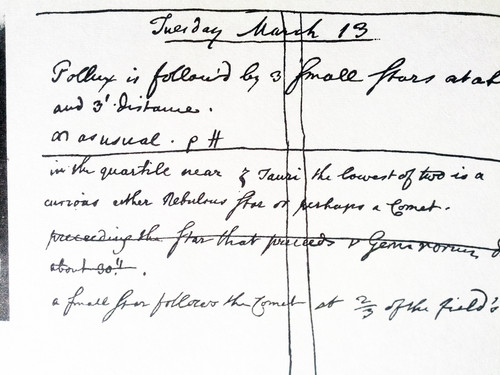 Tuesday March 13
Pollux is follow'd by 3 small stars at ab
and 3' distance.
as usual. p #
in the quartile near ζ Tauri the lowest of two is a
curious either Nebulous star or perhaps a Comet.
preceeding the star that preceeds Geminorum
about 30".
a small star follows the Comet at 2/3 of the field's